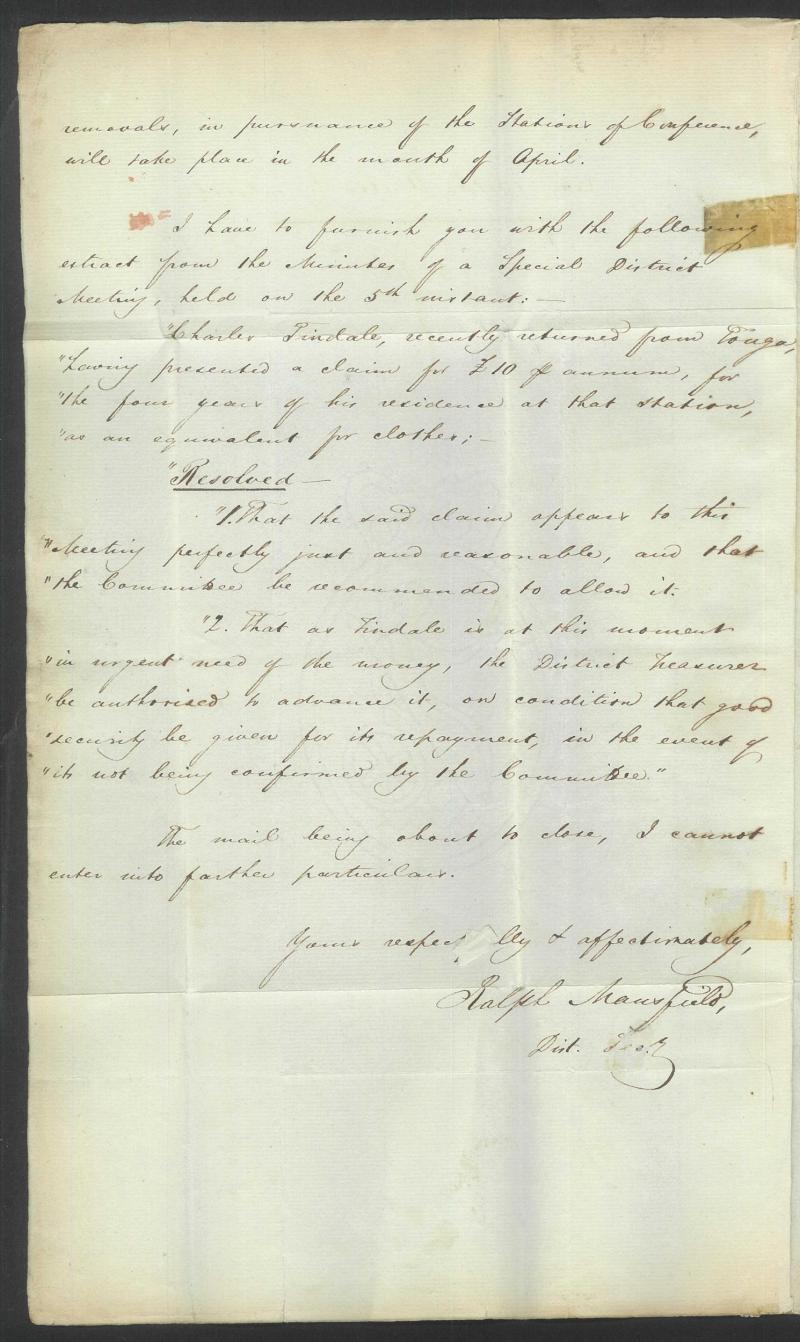 removals, in pursuance of the Stations of Conference,
will take place in the month of April.
I have to furnish you with the following
extract from the Minutes of a Special District
Meeting, held on the 5th instant: —
"Charles Tindale, recently returned from Tonga,
"having presented a claim for £10 ⅌ annum, for
"the four years of his residence at that station,
"as an equivalent for clothes; —
"Resolved —
"1. That the said claim appears to this
"Meeting perfectly just and reasonable, and that
"the Committee be recommended to allow it.
"2. That as Tindale is at this moment
"in urgent need of the money, the District Treasurer
"be authorised to advance it, on condition that good
"security be given for its repayment, in the event of
"its not being confirmed by the Committee."
The mail being about to close, I cannot
enter into farther particulars.
Yours respec lly & affectionately,
Ralph Mansfield,
Dist. Secy